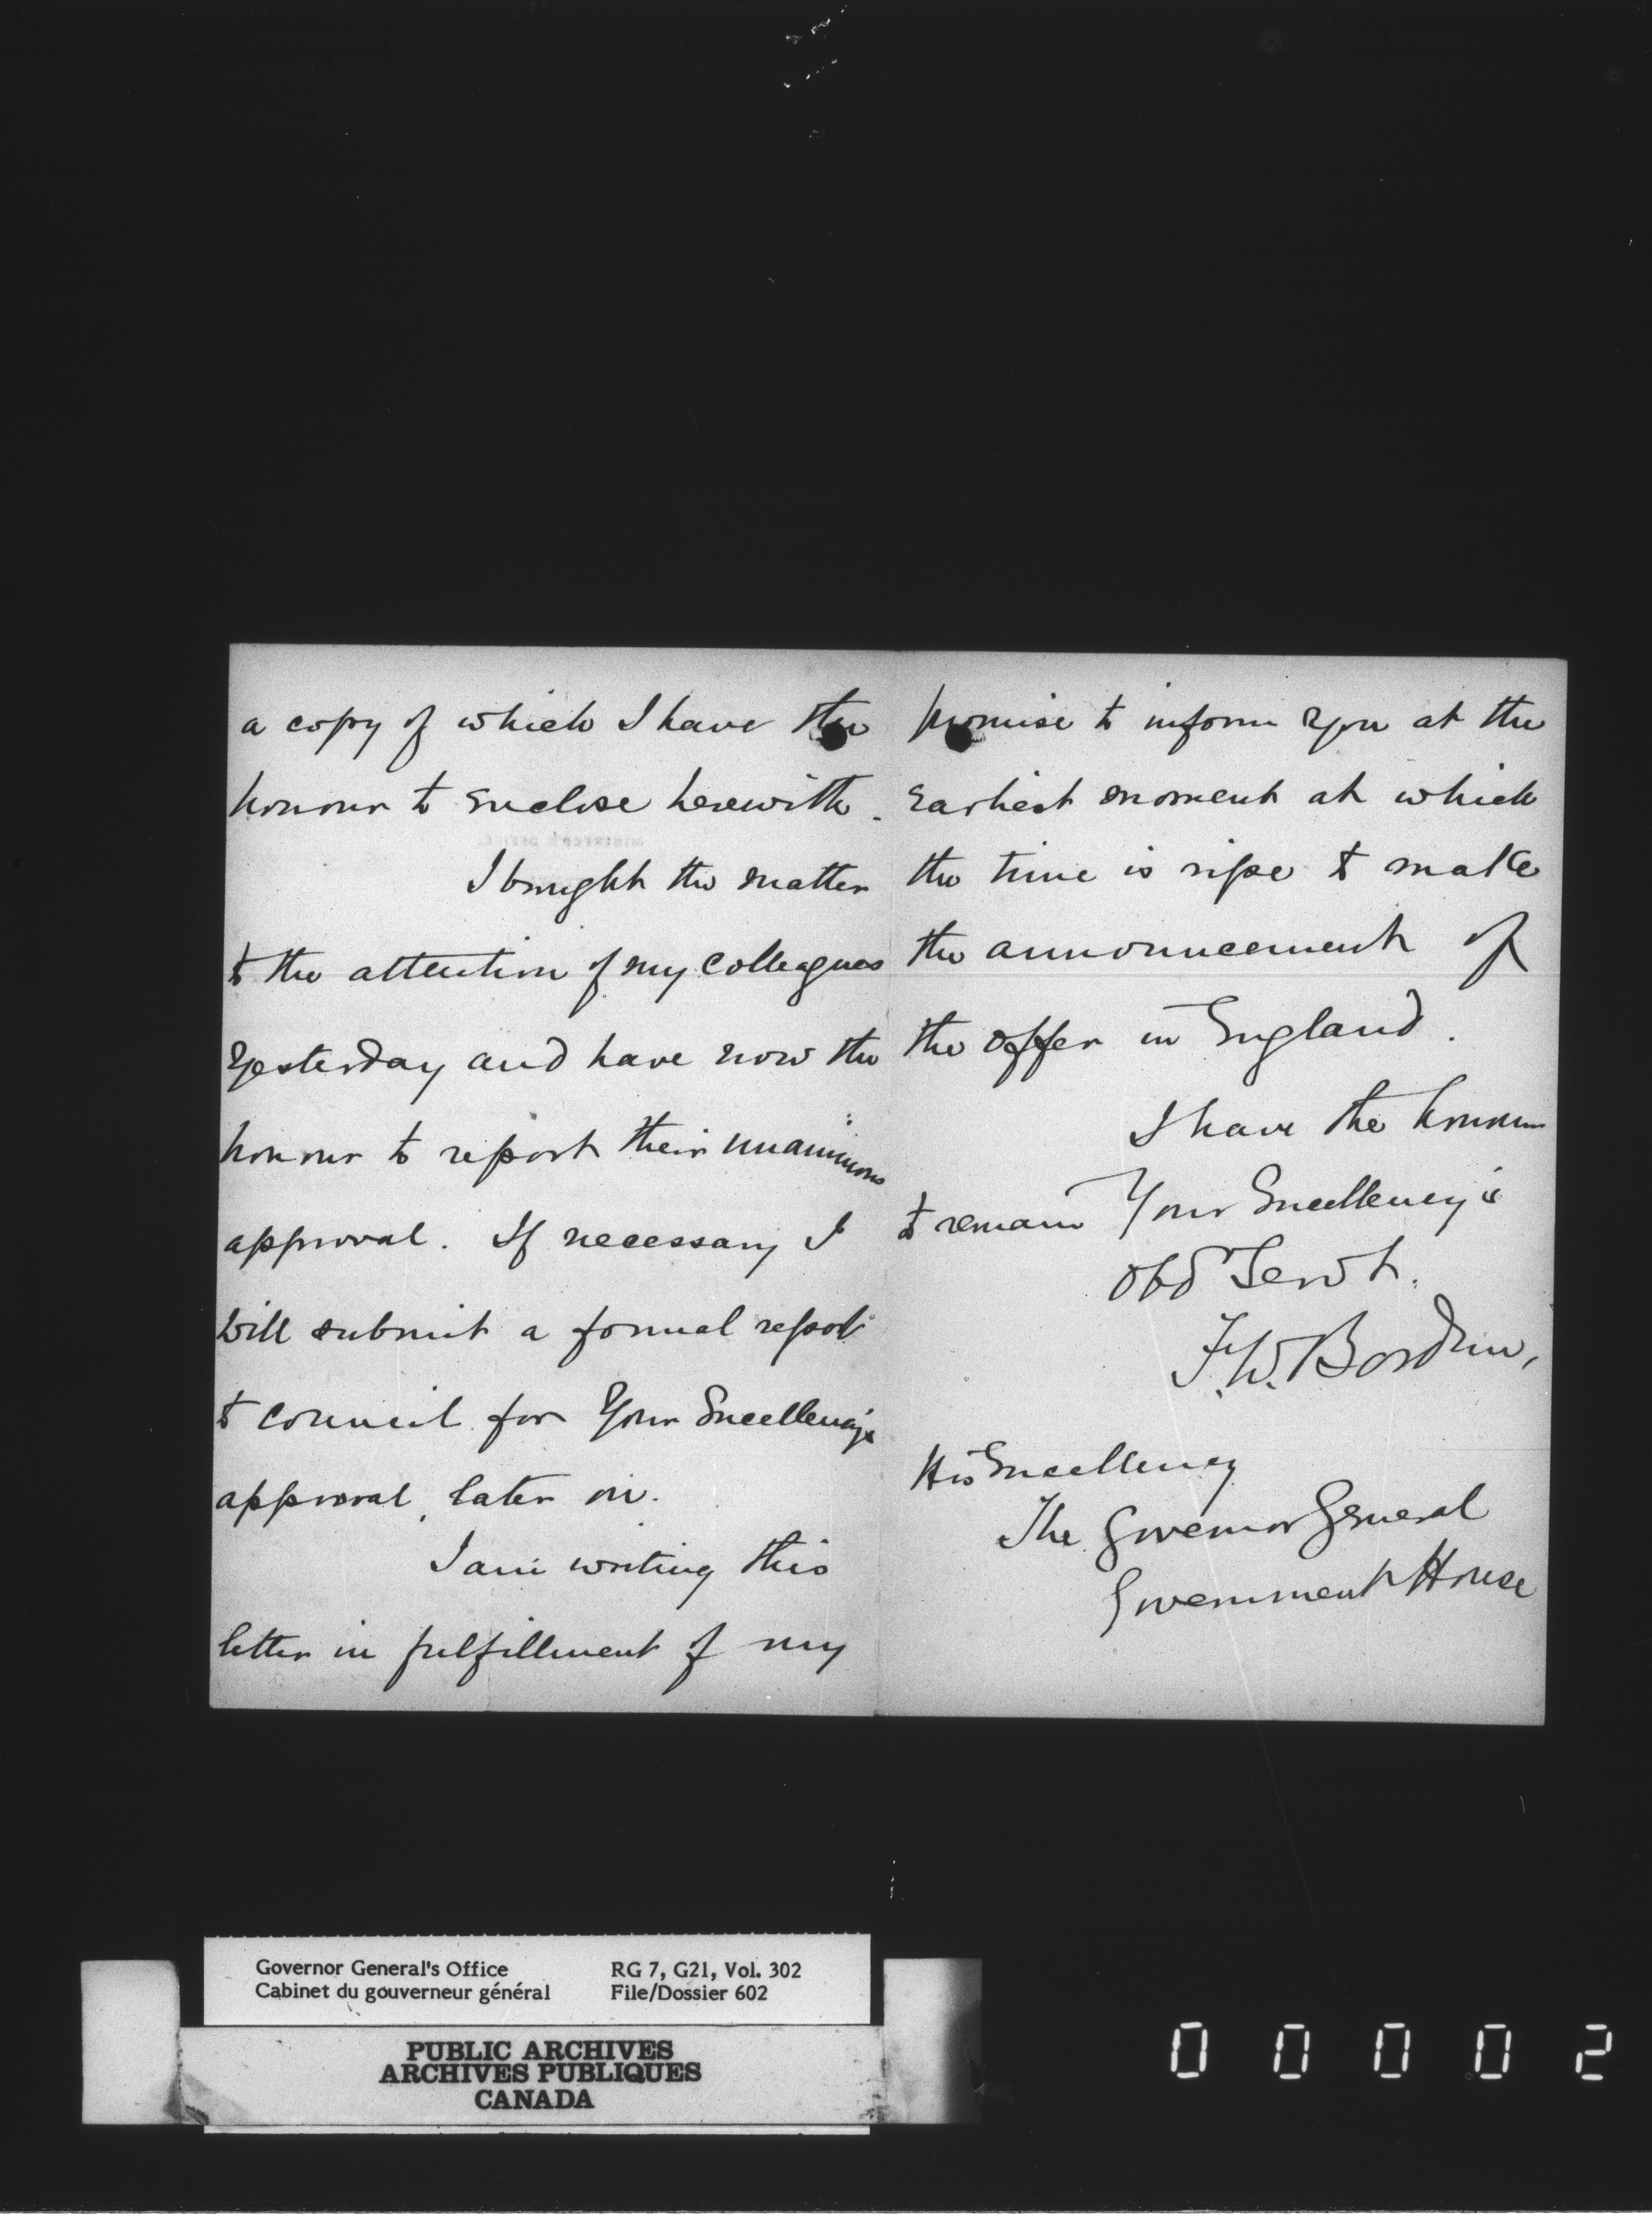 a copy of which I have the
honour to enclose herewith.
I brought the matter
to the attention of my colleagues
yesterday and have now the
honour to report their unanimous
approval. If necessary I
will submit a formal report
to council for Your Excellency's
approval, later on.
I am writing this
letter in fulfillment of my
promise to inform you at the
earliest moment at which
the time is ripe to make
the announcement of
the offer in England.
I have the honour
to remain Your Excellency's
Obd Servt.
F.W. Borden,
His Excellency
The Governor General
Government House
Governor General's Office
Cabinet du gouverneur général
RG 7, G21, Vol. 302
File/Dossier 602
PUBLIC ARCHIVES
ARCHIVES PUBLIQUES
CANADA
00002